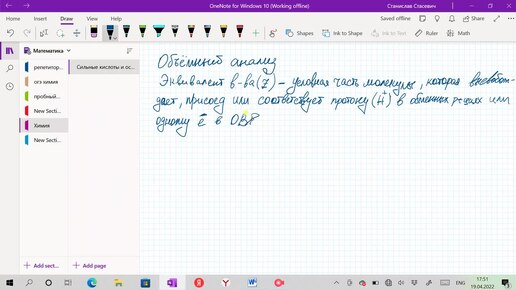 OneNote for Windows 10 (Working offline)
Станислав Стасевич
File
Home
Insert
Draw
View
Help
Class Notebook
Saved offline
Share
Shapes
Ink to Shape
Ink to Text
Math
Математика
репетитор...
огэ химия
пробный...
New Secti...
Химия
New Secti...
Сильные кислоты и ос...
Add secti...
Add page
Объёмный анализ
Эквивалент в-ва (Z) – условная часть молекулы, которая высвобож-
дает, присоед или соответствует протону (H⁺) в обменных р-циях или
одному ē в ОВР
17:51
19.04.2022